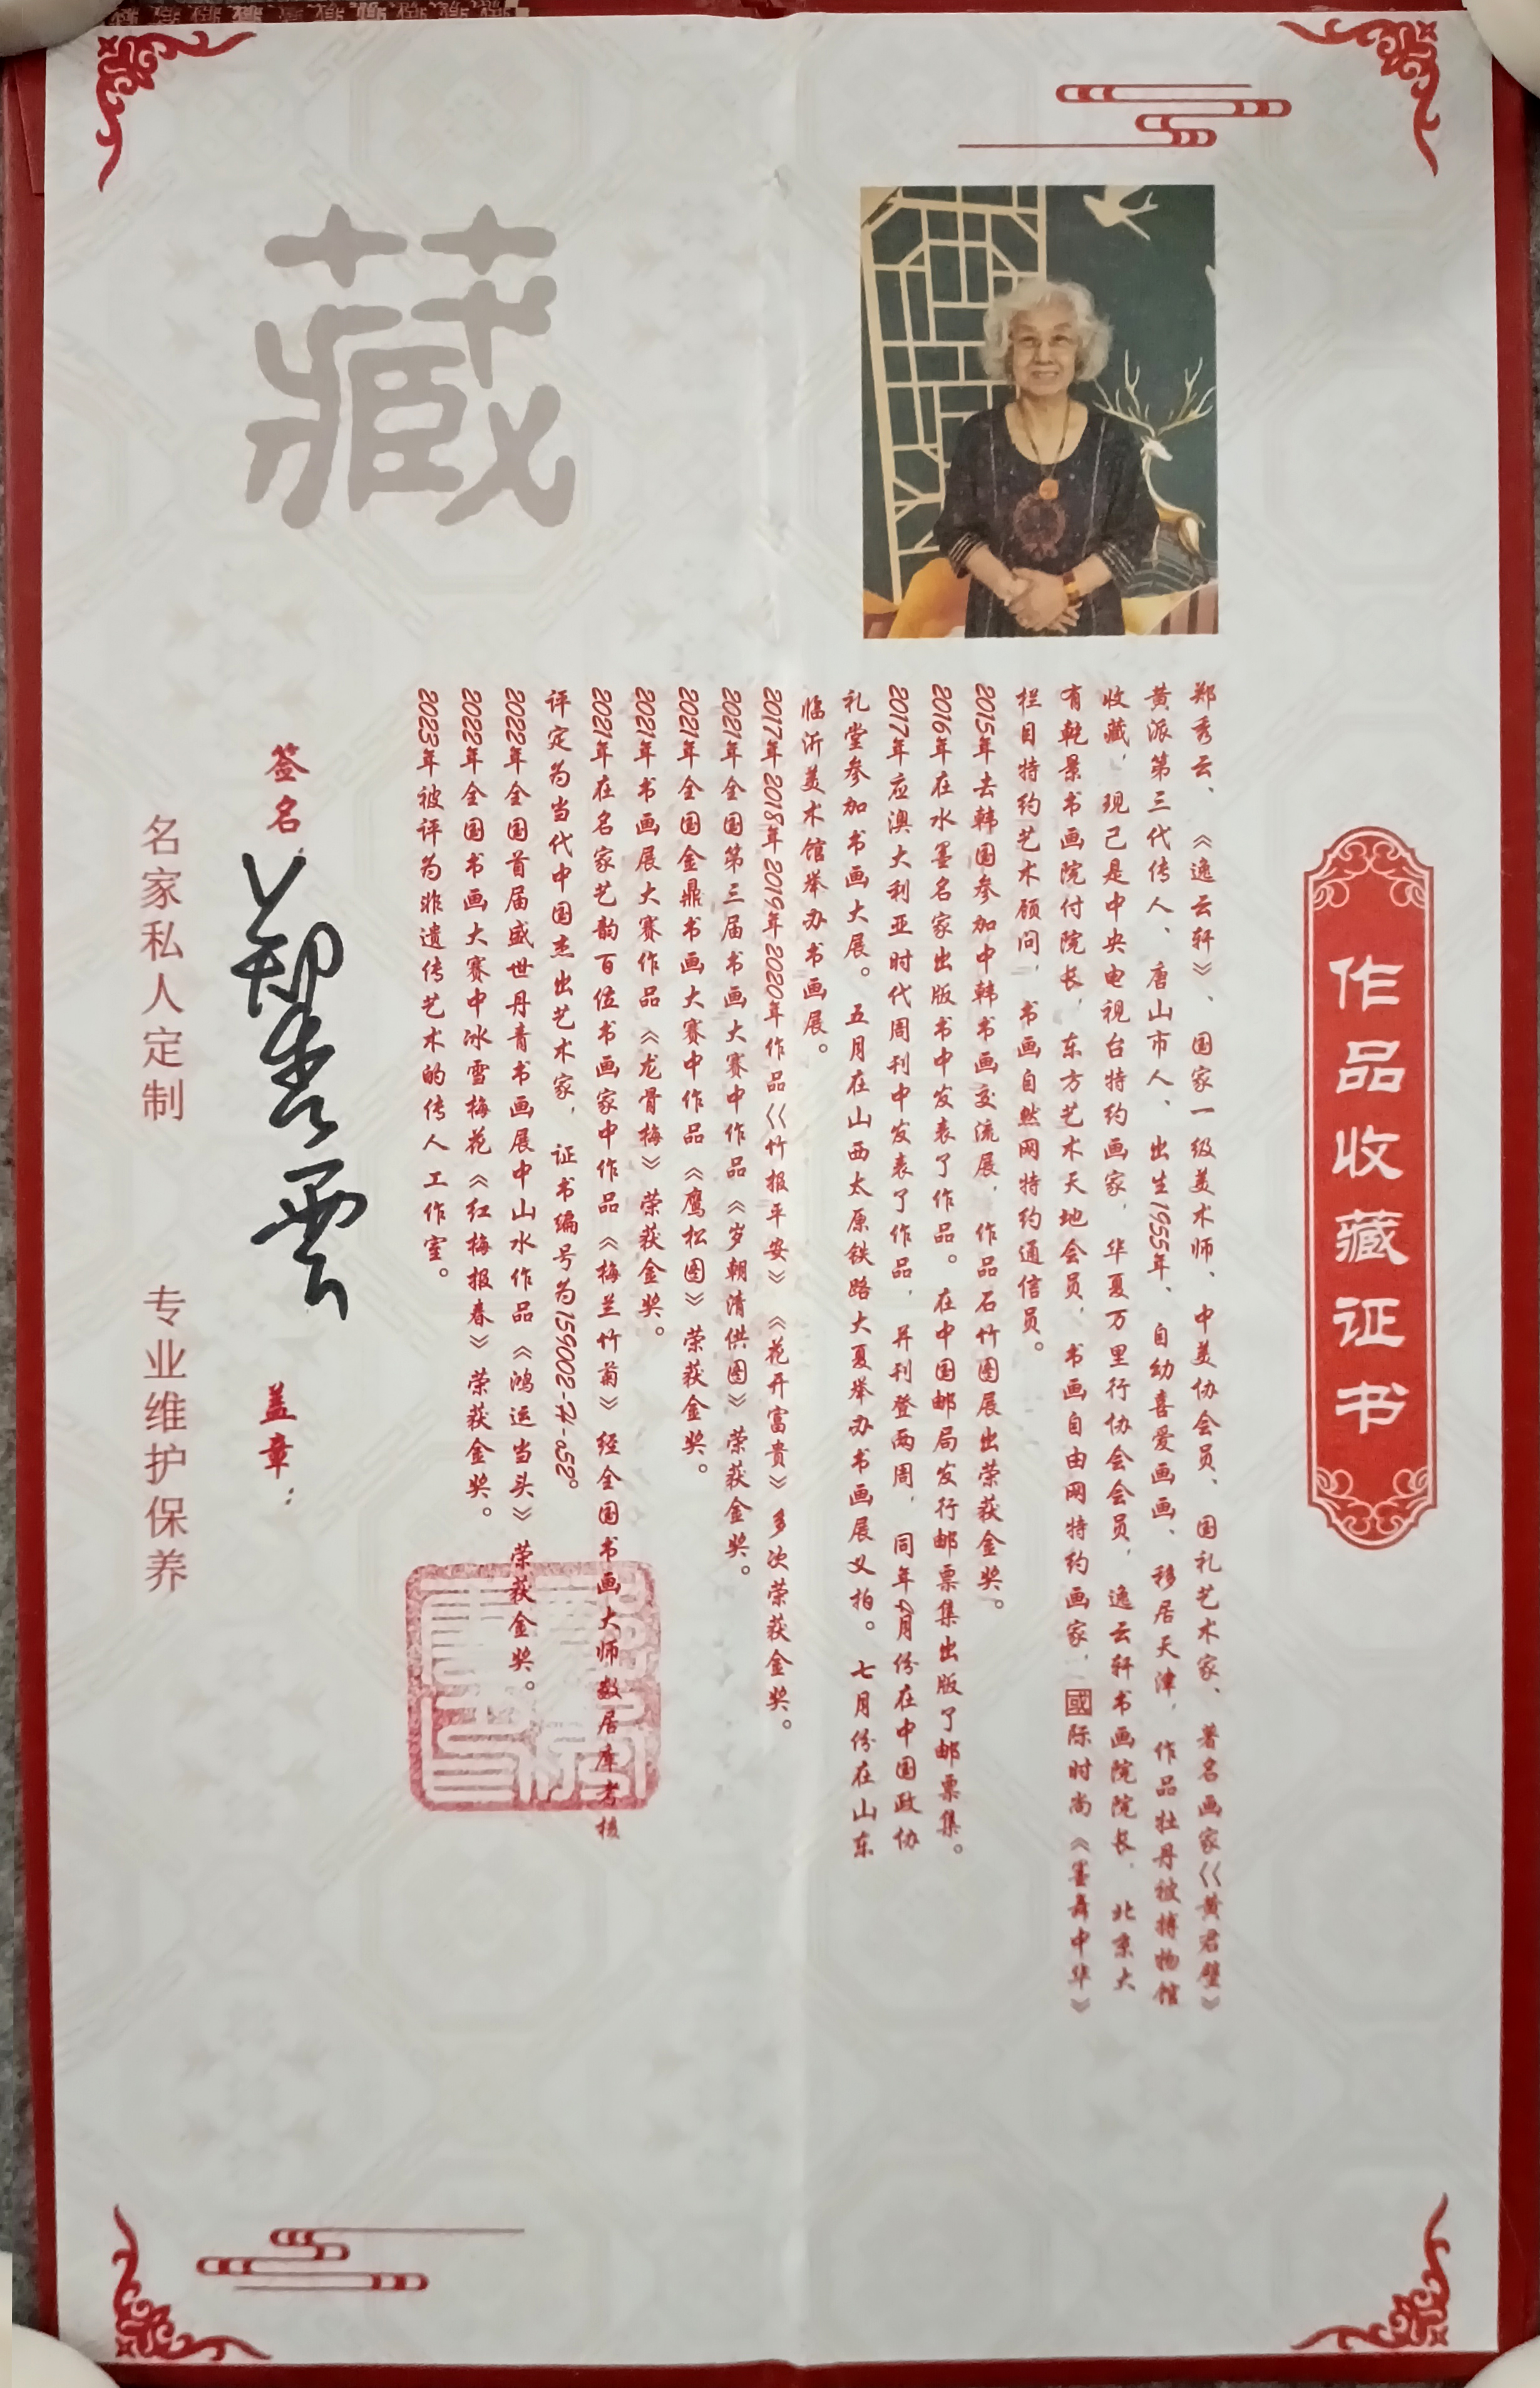 作品收藏证书
郑秀云、《逸云轩》、国家一级美术师、中美协会员、国礼艺术家、著名画家《黄君璧》
黄派第三代传人、唐山市人、出生1955年、自幼喜爱画画、移居天津，作品牡丹被搏物馆
收藏，现己是中央电视台特约画家，华夏万里行协会会员，逸云轩书画院院长，北京大
有乾景书画院付院长，东方艺术天地会员，书画自由网特约画家，國际时尚《墨舞中华》
栏目特约艺术顾问，书画自然网特约通信员。
2015年去韩国参加中韩书画交流展，作品石竹图展出荣获金奖。
2016年在水墨名家出版书中发表了作品。在中国邮局发行邮票集出版了邮票集。
2017年应澳大利亚时代周刊中发表了作品，并刊登两周，同年4月份在中国政协
礼堂参加书画大展。五月在山西太原铁路大夏举办书画展义拍。七月份在山东
临沂美术馆举办书画展。
2017年2018年2019年2020年作品《竹报平安》《花开富贵》多次荣获金奖。
2021年全国第三届书画大赛中作品《岁朝清供图》荣获金奖。
2021年全国金鼎书画大赛中作品《鹰松图》荣获金奖。
2021年书画展大赛作品《龙骨梅》荣获金奖。
2021年在名家艺韵百位书画家中作品《梅兰竹菊》经全国书画大师数居库考核
评定为当代中国杰出艺术家，证书编号为159002-H-a52。
2022年全国首届盛世丹青书画展中山水作品《鸿运当头》荣获金奖。
2022年全国书画大赛中冰雪梅花《红梅报春》荣获金奖。
2023年被评为非遗传艺术的传人工作室。
藏
签名：郑秀雲 盖章：
名家私人定制 专业维护保养